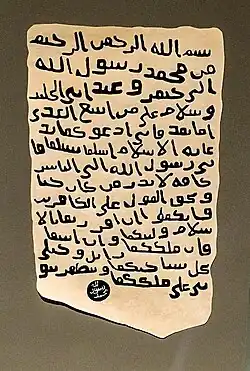 بسم الله الرحمن الرحيم
من محمد رسول الله
الى جيفر و عبد ابني الجلند
وسلام على من اتبع الهدى
اما بعد فاني ادعو كما بد
عايه الاسلام اسلما تسلما فا
ني رسول الله الى الناس
كافه لانذر من كان حيا
ويحق القول على الكافرين
فانكما ان اقررتما بالا
سلام وليتكما وان ابيتما
فان ملككما زايل و خيلي
تحل بساحتكما و تظهر نبو
تي على ملككما
الله
رسول
محمد